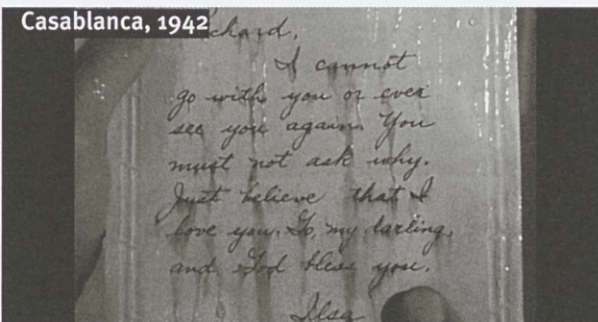 Casablanca, 1942
chard,
I cannot
go with you or ever
see you again. You
must not ask why.
Just believe that I
love you. Go, my darling,
and God bless you.
Ilsa